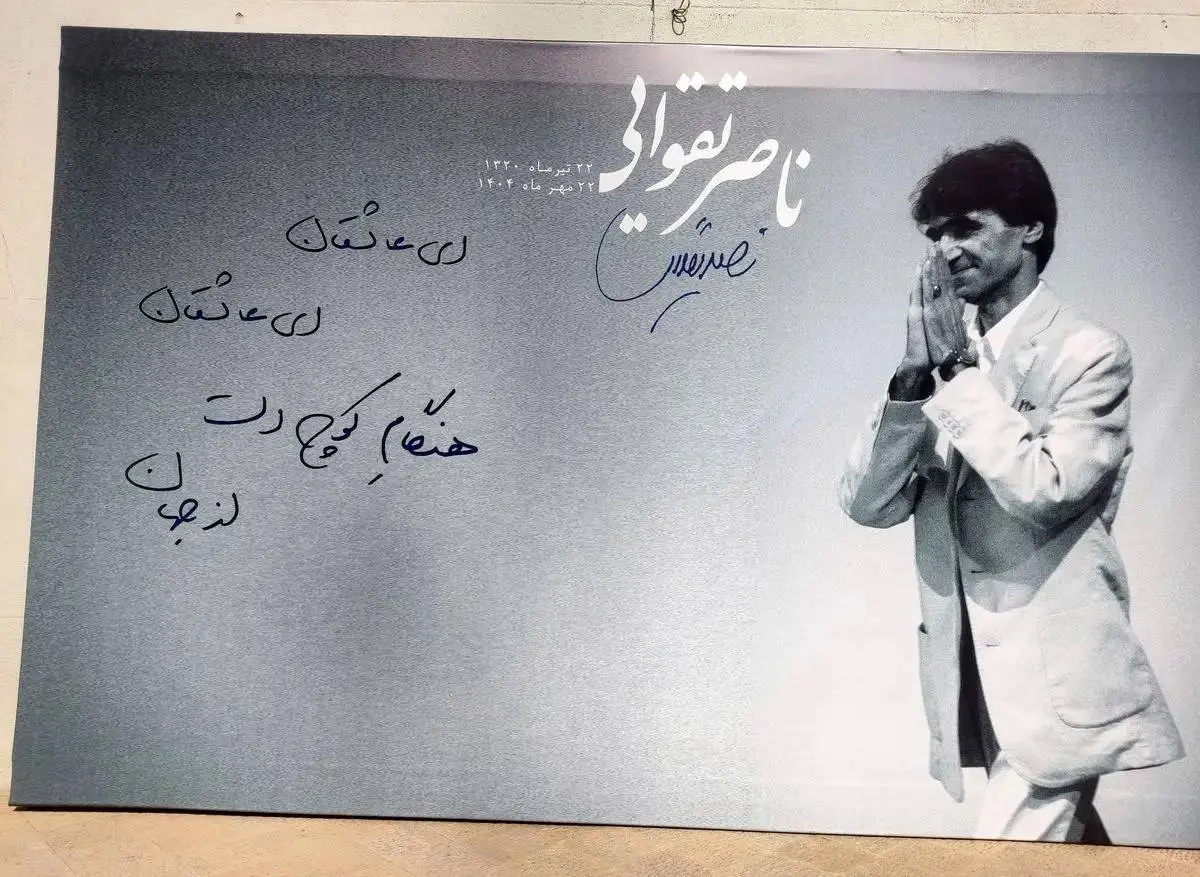 ناصر تقوایی
۲۲ تیر ماه ۱۳۲۰
۲۲ مهر ماه ۱۴۰۴
ای عاشقان
ای عاشقان
هنگامِ کوچ است
از جهان